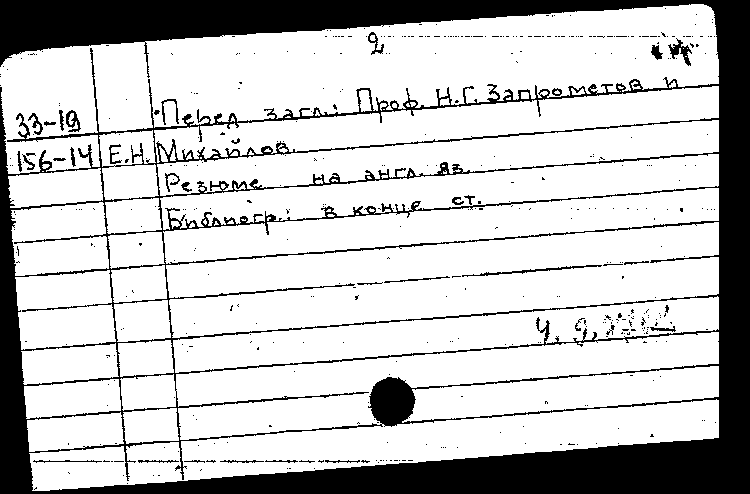 2
33-19 Перед загл.: Проф. Н.Г. Запрометов и
156-14 Е.Н. Михайлов.
Резюме на англ. яз.
Библиогр.: в конце ст.